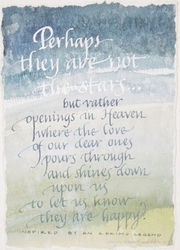 Perhaps
they are not
the stars...
but rather
openings in Heaven
where the love
of our dear ones
pours through
and shines down
upon us
to let us know
they are happy.
INSPIRED BY AN ESKIMO LEGEND